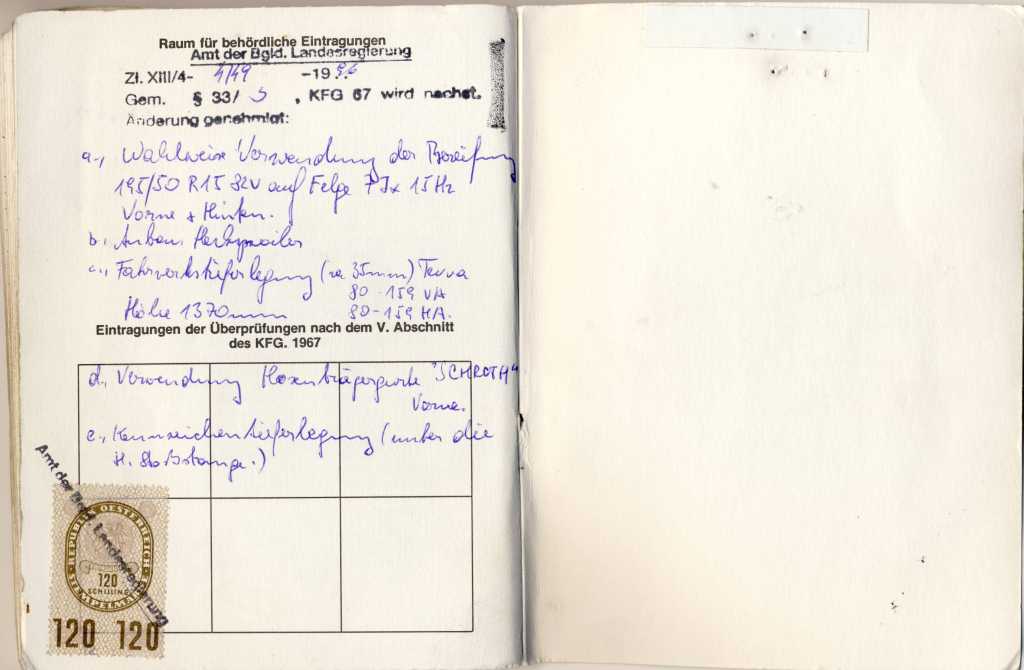 Raum für behördliche Eintragungen
Amt der Bgld. Landesregierung
Zl. XIII/4- 4/49 -19 96
Gem. § 33/ 5 , KFG 67 wird nachst.
Änderung genehmigt:
a., Wahlweise Verwendung der Bereifung
195/50 R15 82V auf Felge 7Jx15H2
Vorne + Hinten.
b., Anbau Heckspoiler
c., Fahrwerkstieferlegung (ca 35mm)
80-159 VA
Höhe 1370mm 80-159 HA.
Eintragungen der Überprüfungen nach dem V. Abschnitt
des KFG. 1967
d., Verwendung Hosenträgergurte "SCHROTH"
Vorne.
e., Kennzeichentieferlegung (unter die
H. Stoßstange.)
Amt der Bgld. Landesregierung
REPUBLIK OESTERREICH
STEMPELMARKE
120
SCHILLING
120 120